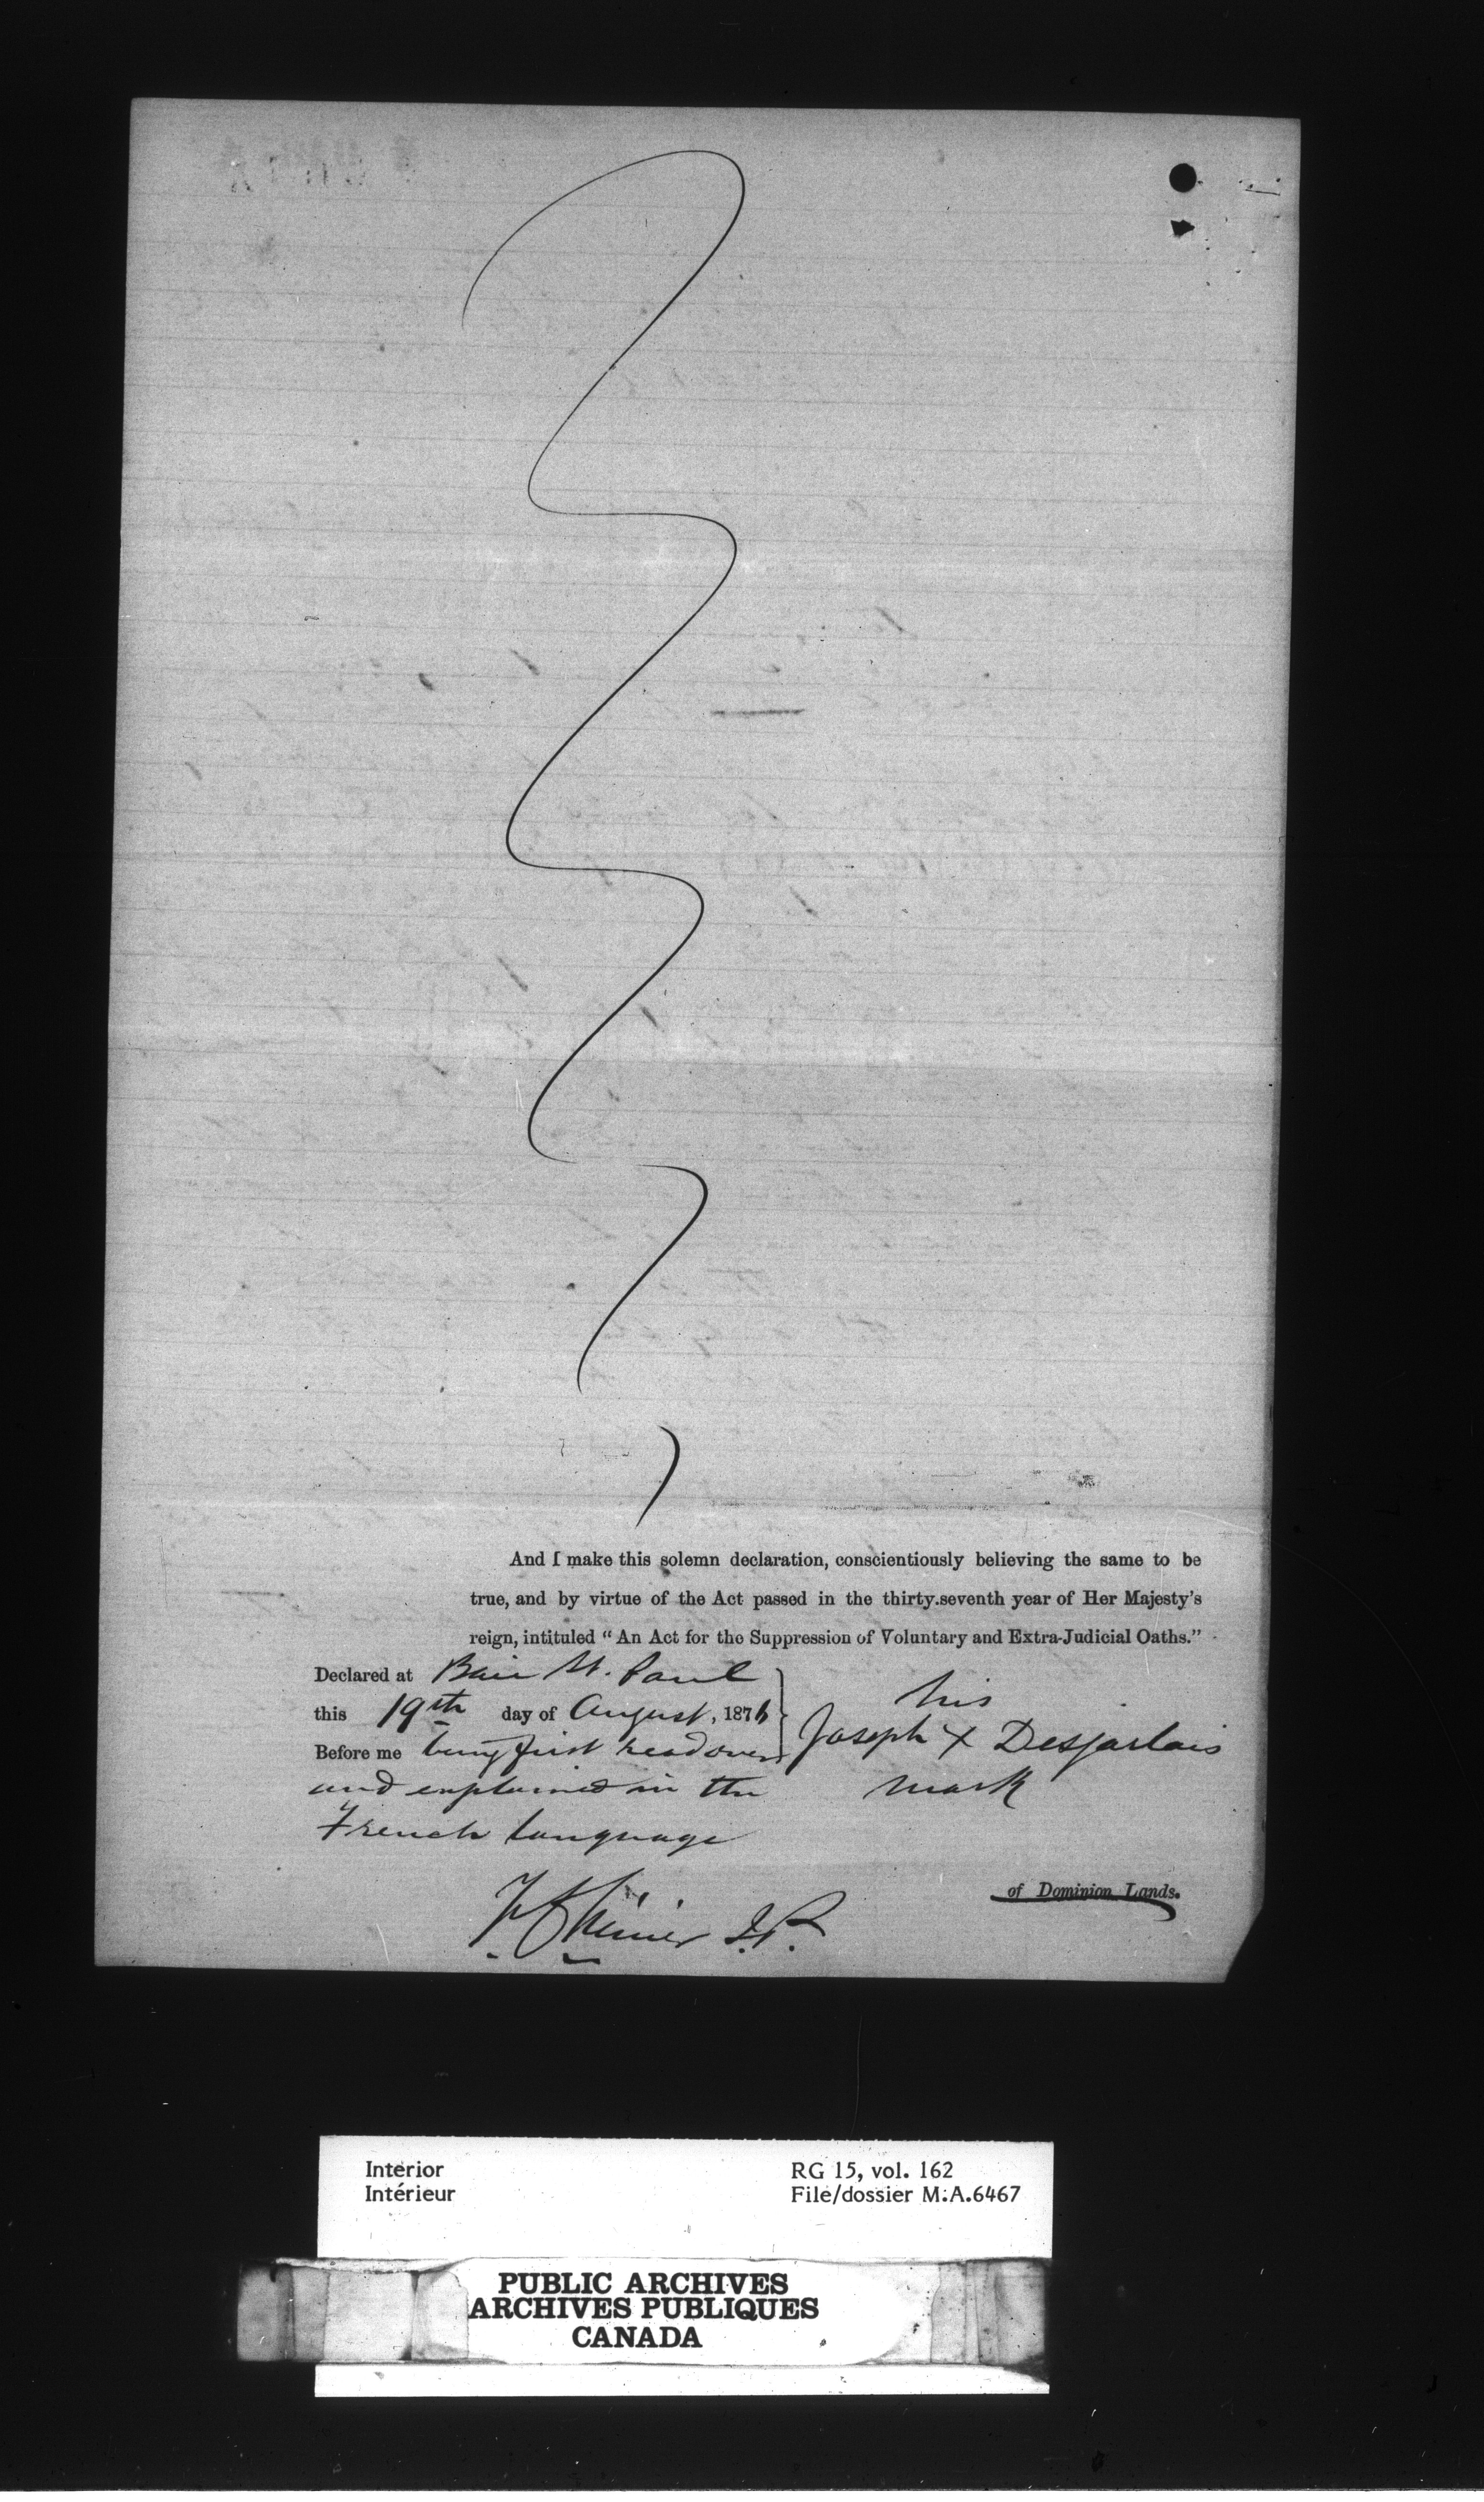 And I make this solemn declaration, conscientiously believing the same to be
true, and by virtue of the Act passed in the thirty-seventh year of Her Majesty's
reign, intituled "An Act for the Suppression of Voluntary and Extra-Judicial Oaths."
Declared at Baie St. Paul
this 19th day of August, 1876
Before me being first read over
and explained in the
French language
his
Joseph X Desjarlais
mark
J.P.
of Dominion Lands.
Interior
Intérieur
RG 15, vol. 162
File/dossier M.A.6467
PUBLIC ARCHIVES
ARCHIVES PUBLIQUES
CANADA